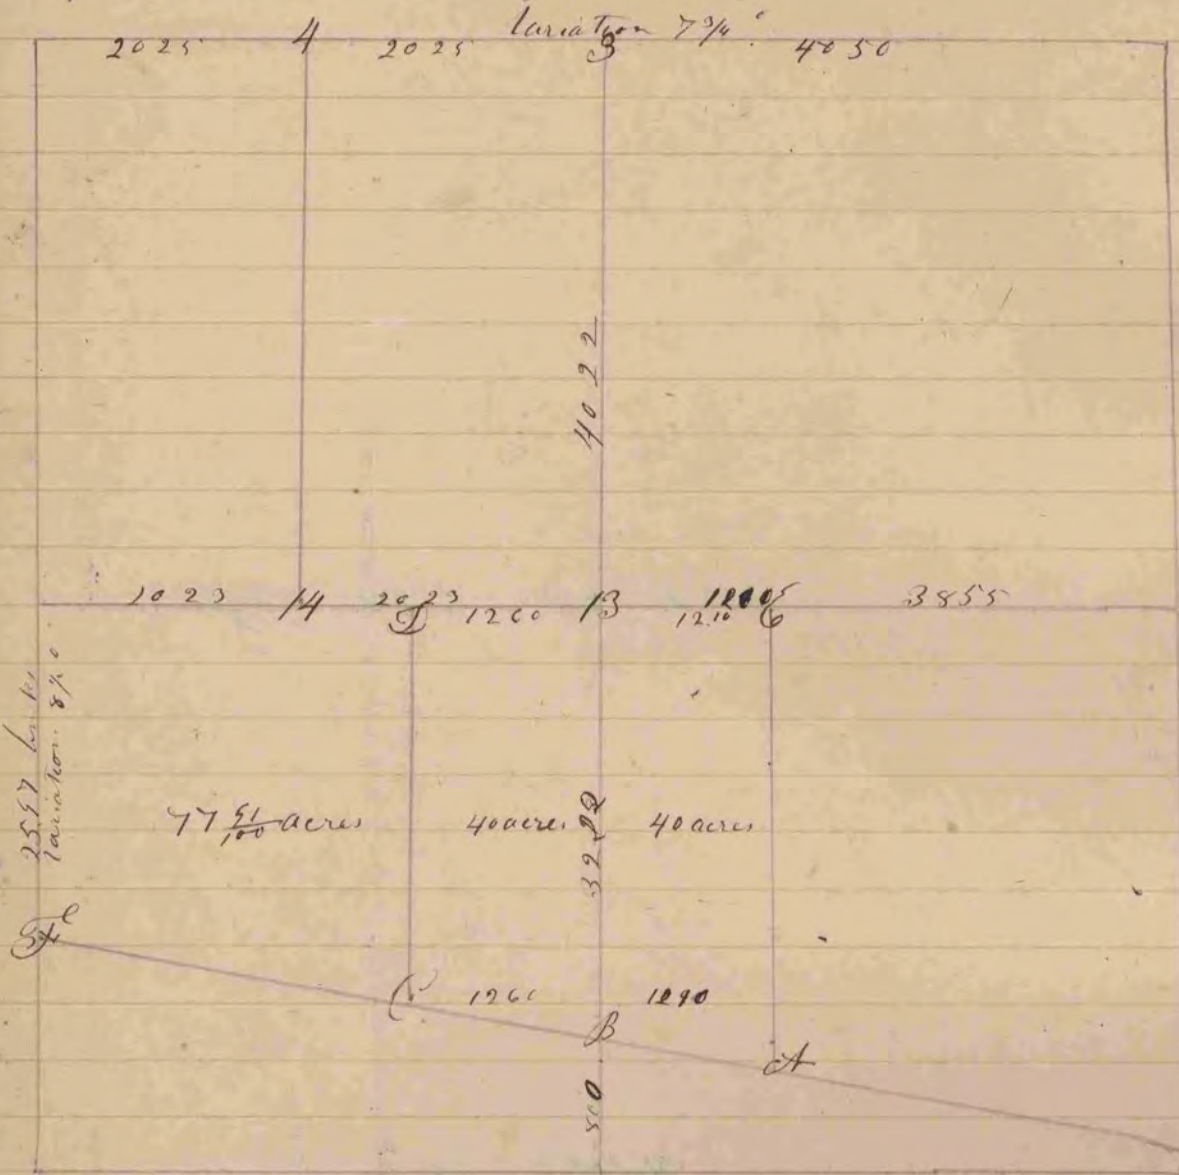 Variation 7 3/4 °
2025 4 2025 3 4050
4022
1023 14 2023 13 3855
1260 1210 6
2557
variation
77 51/100 acres 40 acres 40 acres
1260 1290
B
A
800